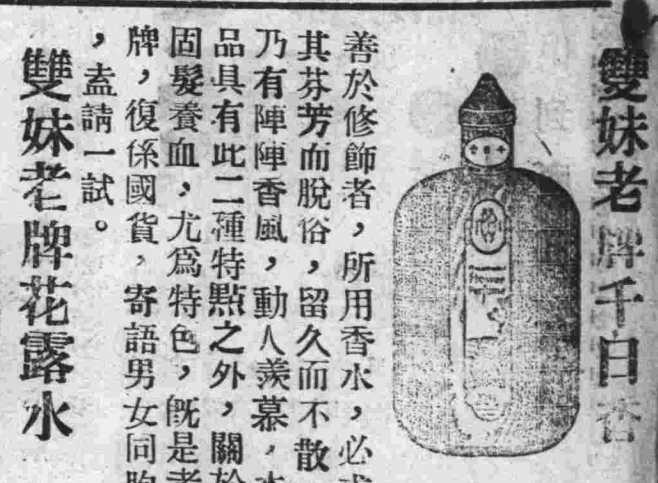 雙妹老牌千日香
善於修飾者，所用香水，必求
其芬芳而脫俗，留久而不散
乃有陣陣香風，動人羨慕，本
品具有此二種特點之外，關於
固髮養血，尤爲特色，旣是老
牌，復係國貨，寄語男女同胞
，盍請一試。
雙妹老牌花露水